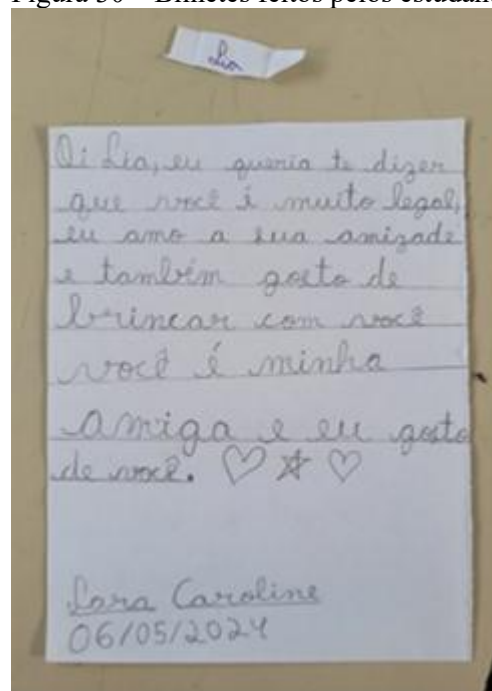 Figura 30 – Bilhetes feitos pelos estudan
Lia
Oi Lia, eu queria te dizer
que você é muito legal,
eu amo a sua amizade
e também gosto de
brincar com você
você é minha
amiga e eu gosto
de você. ♡☆♡
Lara Caroline
06/05/2024